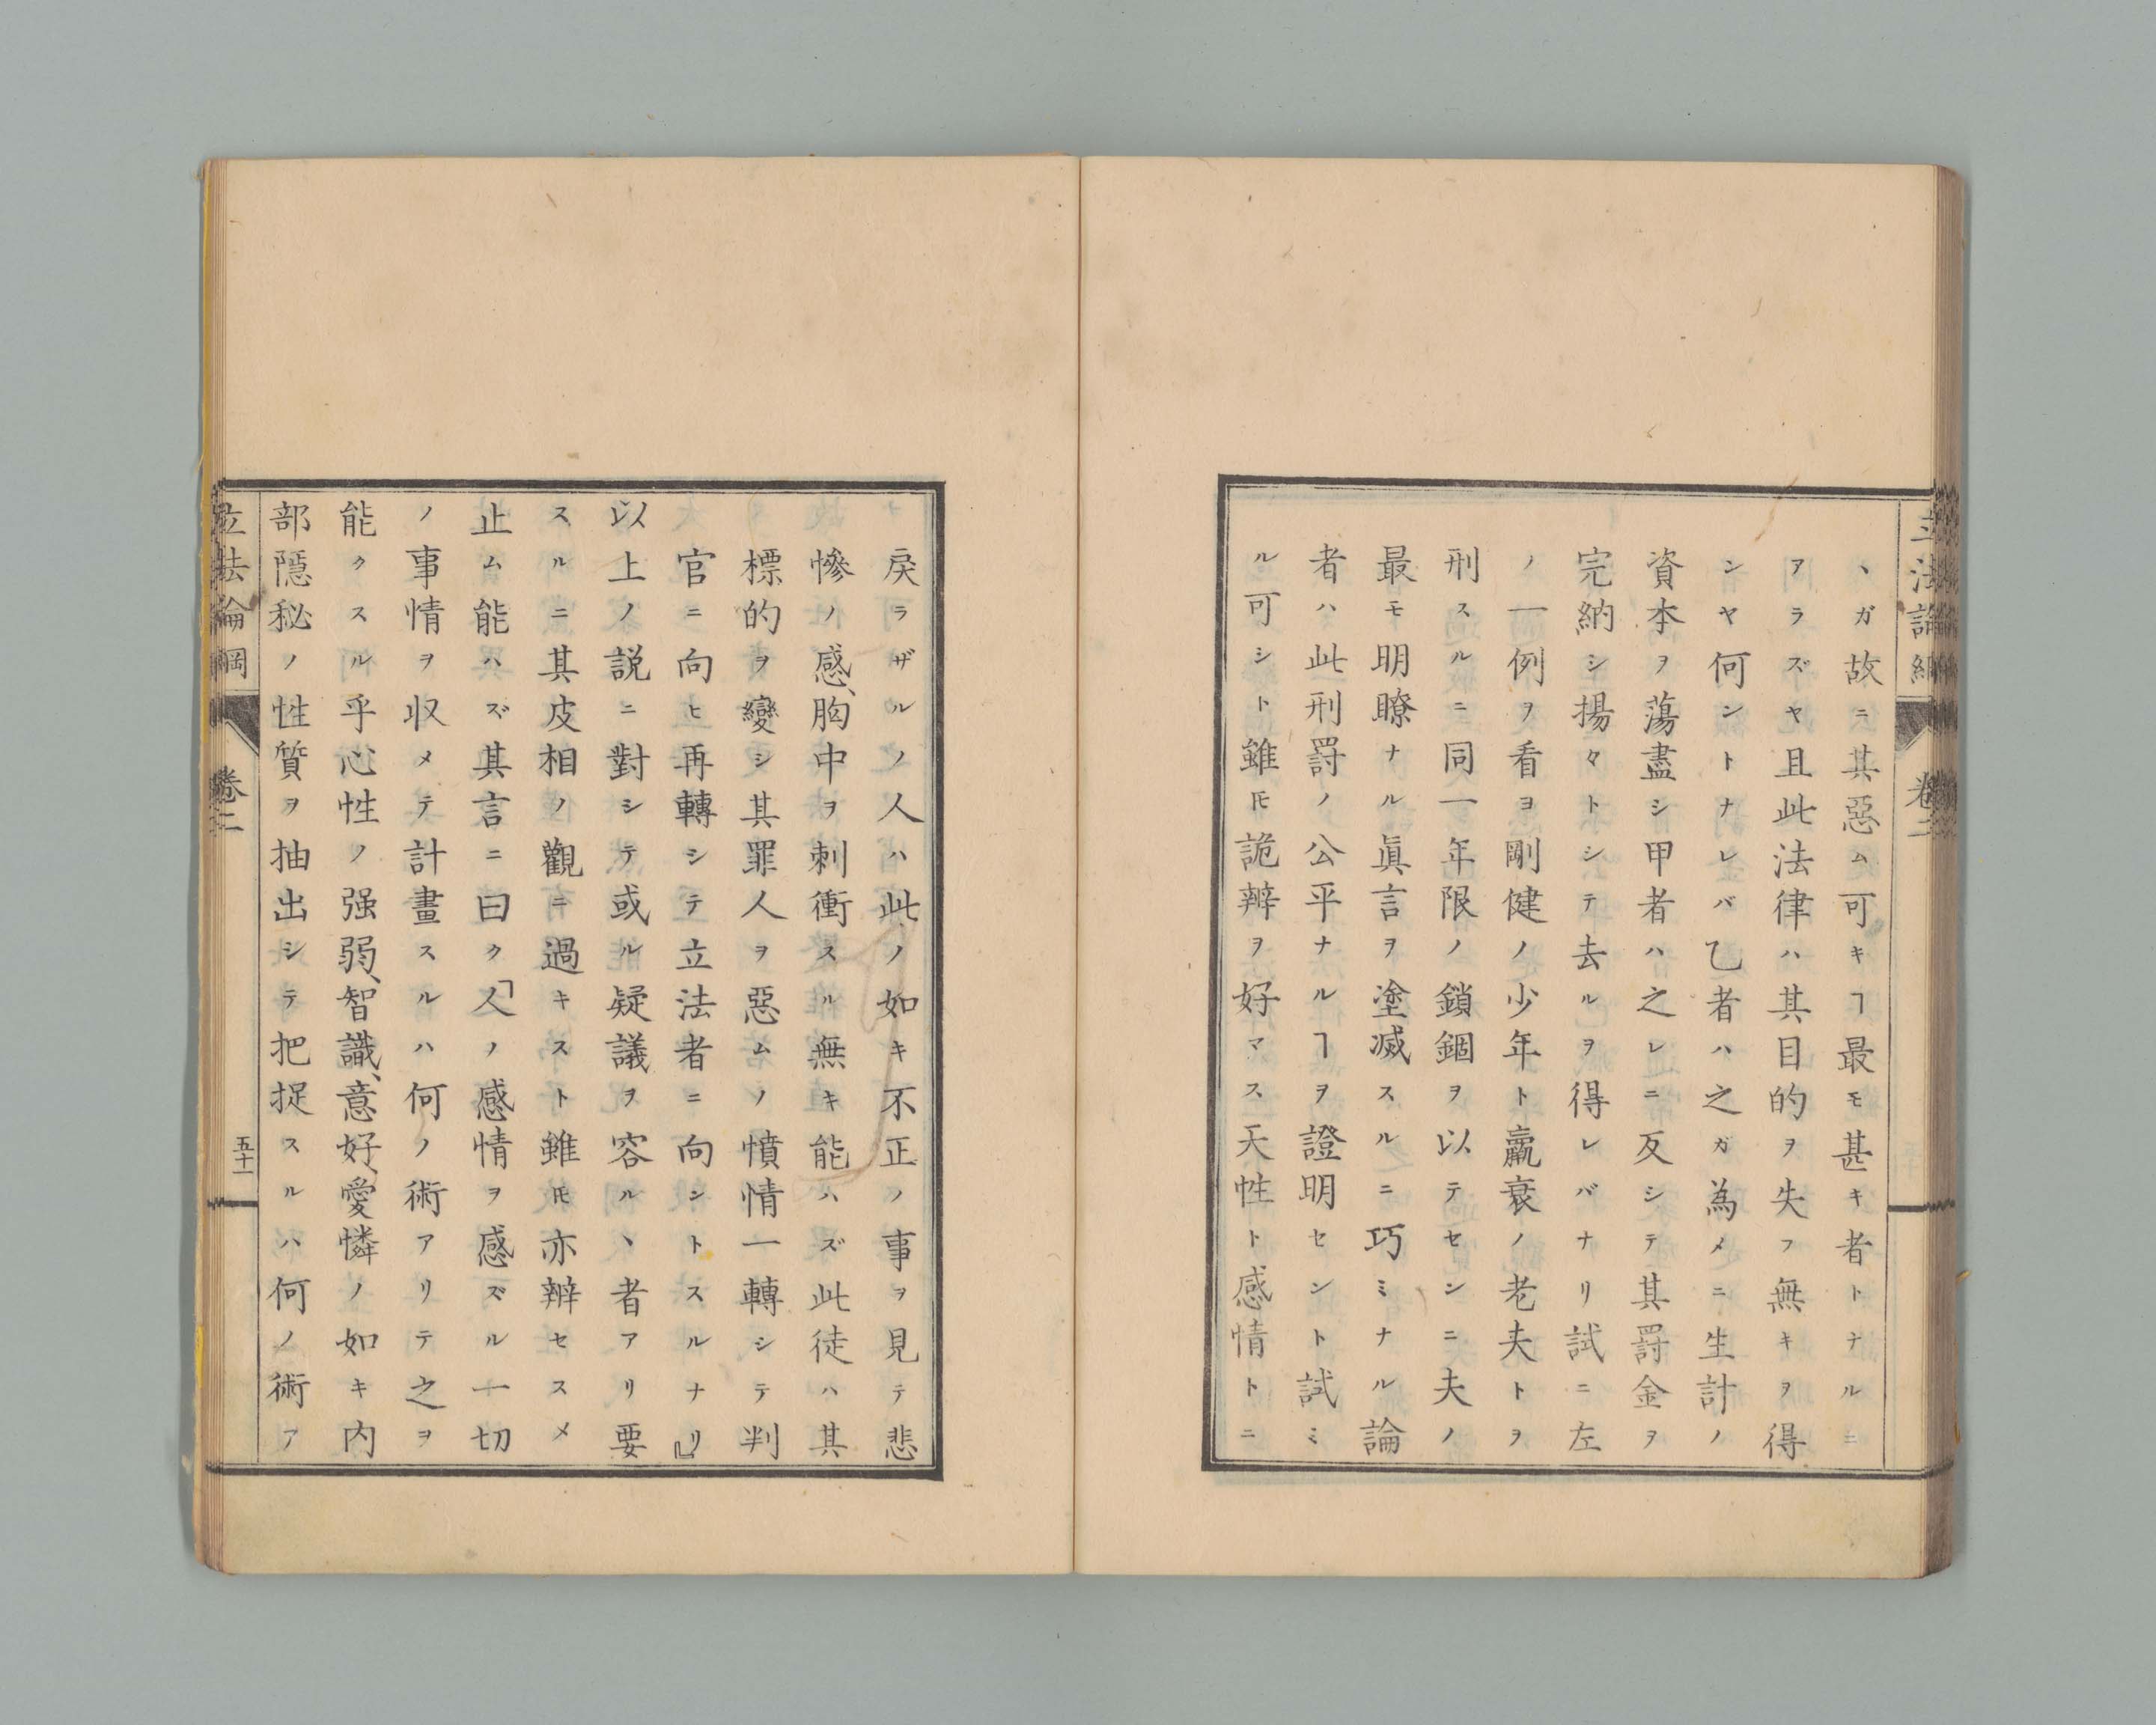 立法論綱
卷二
ヽガ故ニ其惡ム可キヿ最モ甚キ者トナルニ
アラズヤ且此法律ハ其目的ヲ失フ無キヲ得
ンヤ何ントナレバ乙者ハ之ガ為メニ生計ノ
資本ヲ蕩盡シ甲者ハ之レニ反シテ其罸金ヲ
完納シ揚々トシテ去ルヲ得レバナリ試ニ左
ノ一例ヲ看ヨ剛健ノ少年ト羸衰ノ老夫トヲ
刑スルニ同一年限ノ鎖錮ヲ以テセンニ夫ノ
最モ明瞭ナル眞言ヲ塗滅スルニ巧ミナル論
者ハ此刑罸ノ公平ナルヿヲ證明セント試ミ
ル可シト雖𪜈詭辨ヲ好マス天性ト感情トニ
戾ラザルノ人ハ此ノ如キ不正ノ事ヲ見テ悲
慘ノ感、胸中ヲ刺衝スル無キ能ハズ此徒ハ其
標的ヲ變シ其罪人ヲ惡ムノ憤情一轉シテ判
官ニ向ヒ再轉シテ立法者ニ向ントスルナリ』
以上ノ説ニ對シテ或ル疑議ヲ容ルヽ者アリ要
スルニ其皮相ノ觀ニ過キスト雖𪜈亦辨セスメ
止ム能ハズ其言ニ曰ク「人ノ感情ヲ感ズル一切
ノ事情ヲ収メテ計畫スルハ何ノ術アリテ之ヲ
能クスル乎心性ノ强弱、智識、意好、愛憐ノ如キ内
部隱秘ノ性質ヲ抽出シテ把捉スルハ何ノ術ア
立法論綱
卷二
五十一